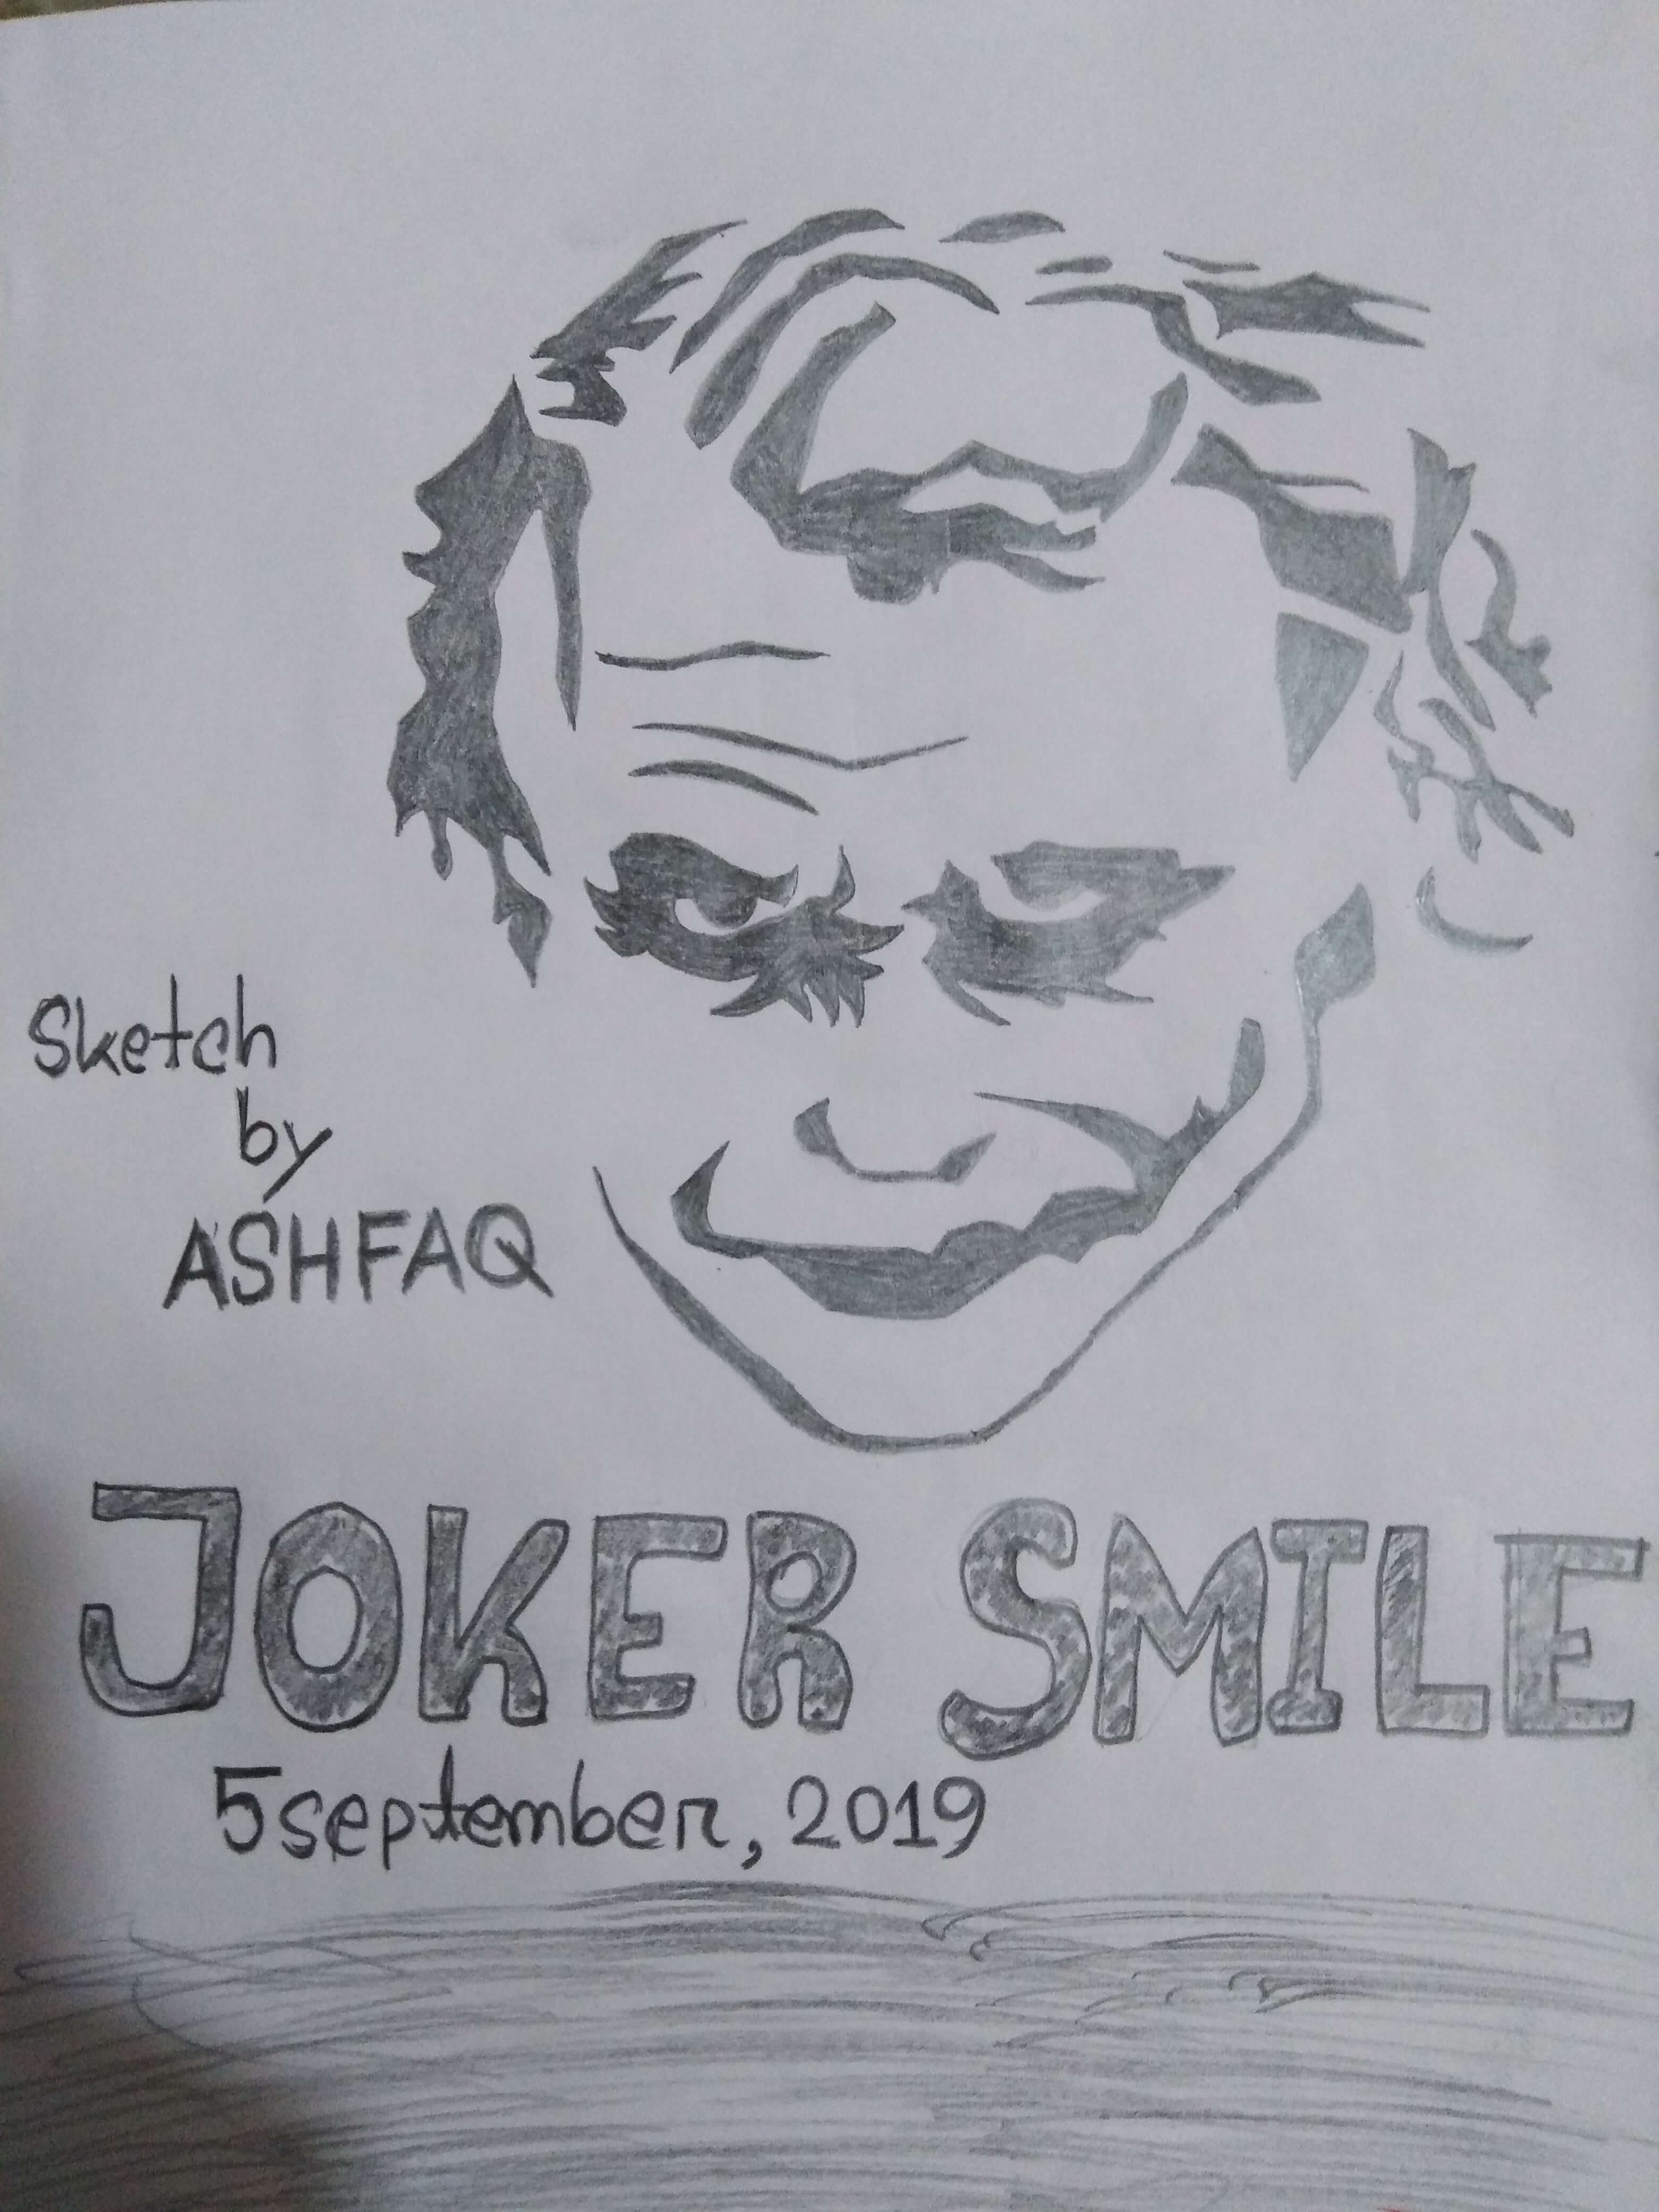 Sketch
by
ASHFAQ
JOKER SMILE
5 september, 2019